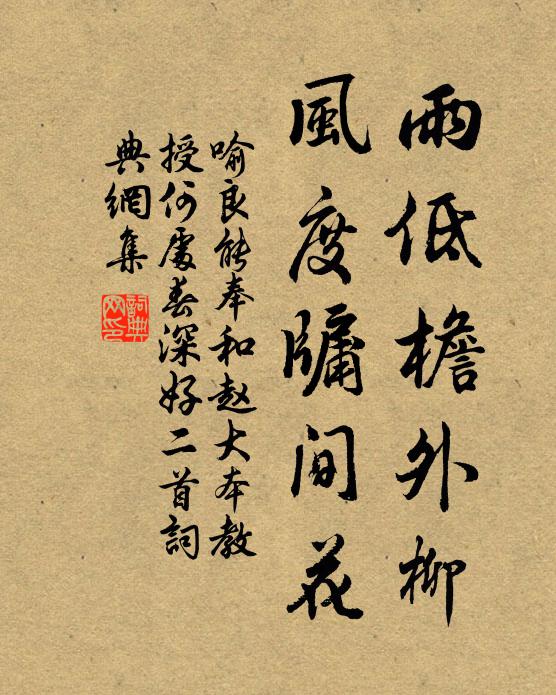 雨低檐外柳
風度牖間花
喻良能奉和赵大本教
授何處春深好二首詞
典網集
詞典
网印